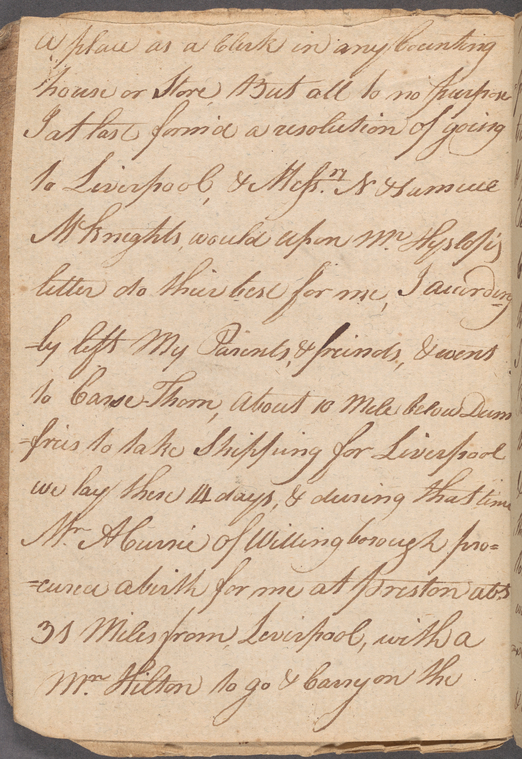 a place as a Clerk in any Counting
house or Store, But all to no purpose
I at last form'd a resolution of going
to Liverpool, & Messrs. N & Samuel
McKnights, would upon Mr. Hyslop's
letter do their best for me, I according
-ly left My Parents, & freinds, & went
to Carse-Thorn, About 10 Mile below Dum
-fries to take Shipping for Liverpool
we lay there 14 days, & during that time
Mr. A Currie of Willingborough pro=
=cured a birth for me at Preston abt
31 Miles from Liverpool, with a
Mrs. Hilton to go & Carry on the